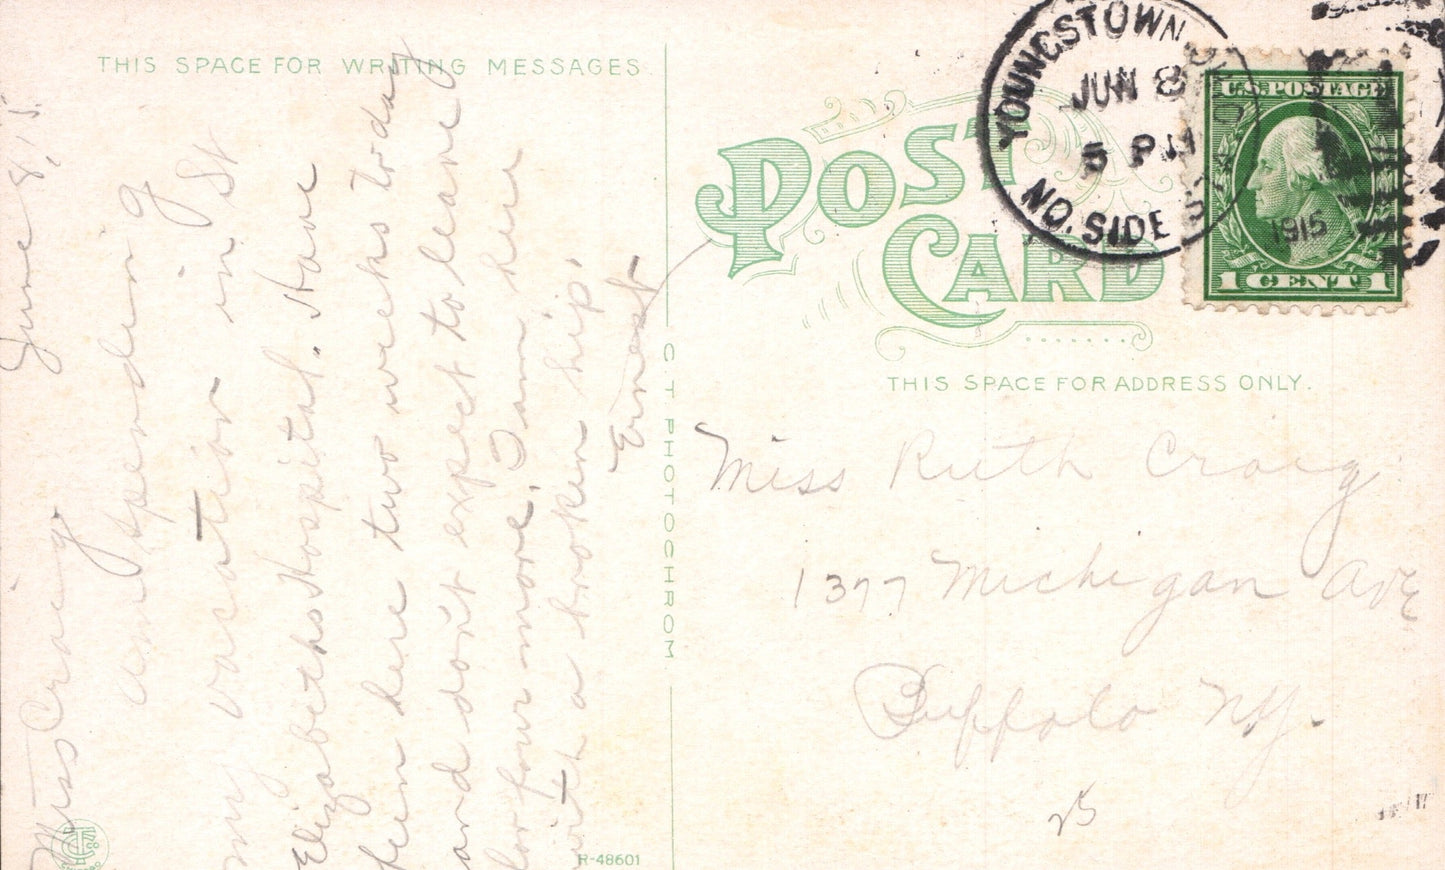 THIS SPACE FOR WRITING MESSAGES.
June 8, 15.
Miss Craig
am spending
my vacation in St
Elizabeths Hospital. Have
been here two weeks today
and don't expect to leave
for four more. I am here
with a broken hip.
Ernest
C T PHOTOCHROM
R-48601
POST CARD
YOUNGSTOWN
JUN 8
5 PM
NO. SIDE
1915
U.S. POSTAGE
1 CENT 1
THIS SPACE FOR ADDRESS ONLY.
Miss Ruth Craig
1377 Michigan Ave
Buffalo N.Y.